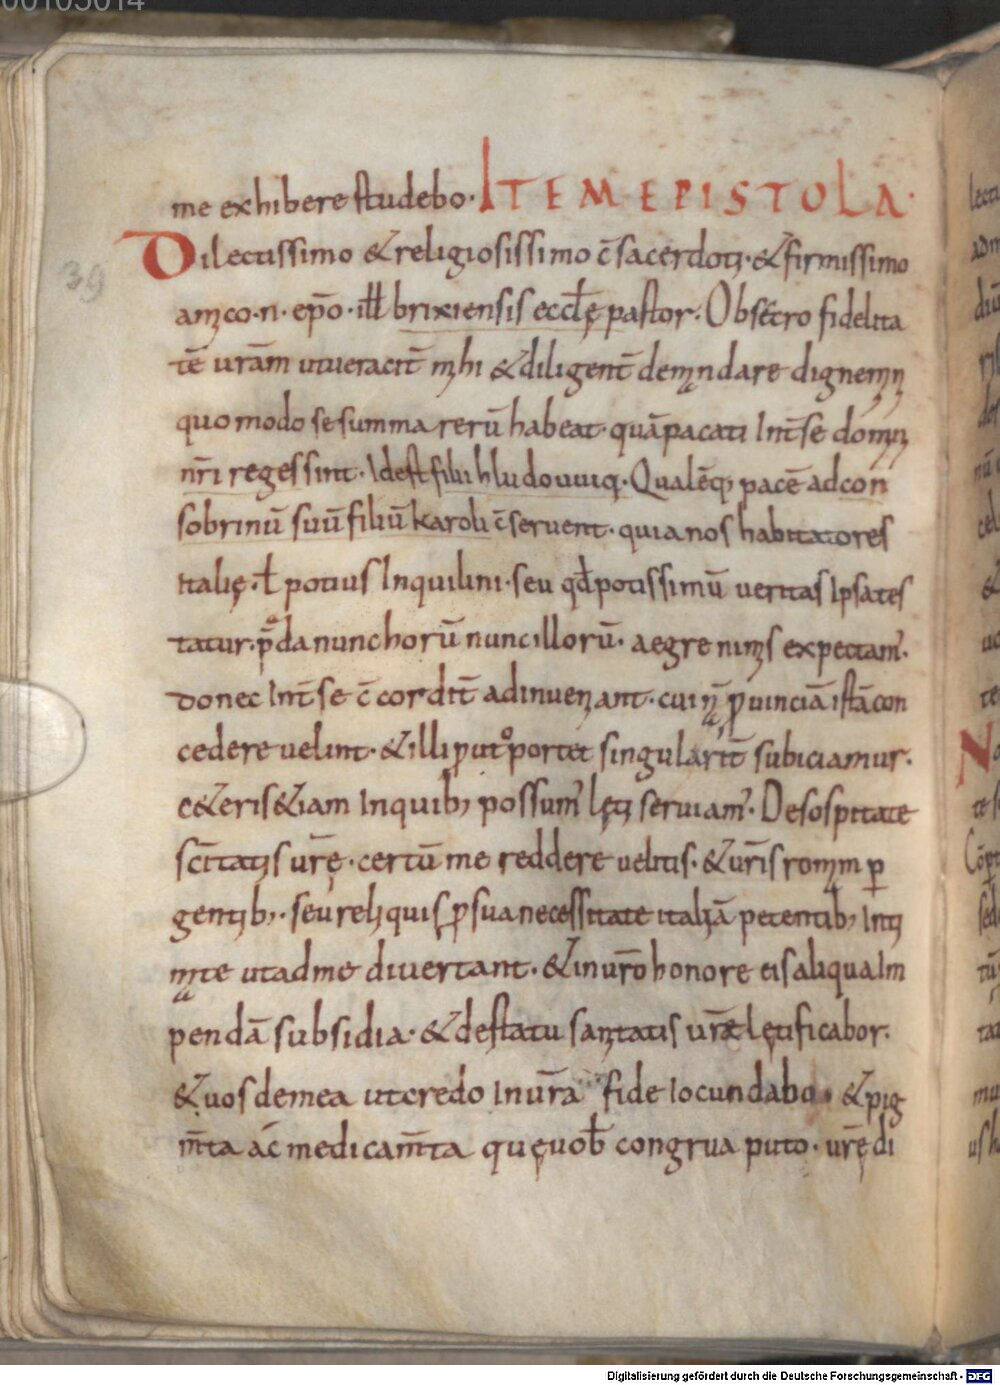 00105014
me exhibere studebo· ITEM EPISTOLA·
39
Dilectissimo & religiosissimo c̄sacerdoti·& firmissimo
amico·n· ep̄o· ill brixiensis eccl̄ę pastor· Obsecro fidelita
tē urām utueracit̄ mihi & diligent̄ demandare dignemini
quo modo se summa rerū habeat· quā pacati Int̄se domini
nr̄i reges sint· Idest filii hludouuici· Qualēq; pacē ad con
sobrinū suū filiū karoli c̄seruent· quia nos habitatores
Italię· ł potius Inquilini· seu qđ potissimū ueritas Ipsa tes
tatur· p̄da nunc horū nunc illorū· aegre nimis expectam̄·
donec Int̄se c̄cordit̄ adinueniant· cui prouinciā istā con
cedere uelint· & illi prout oportet singularit̄ subiciamur·
c&eris &iam Inquib; possum̄ lęti seruiam̄· De sospitate
sc̄itatis ur̄ę· certū me reddere uelitis· & ur̄is romam p
gentib;· seu reliquis p sua necessitate italiā petentib; Inti
mate ut ad me diuertant· & in ur̄o honore eis aliqua Im
pendā subsidia· & de statu sanitatis ur̄æ lętificabor·
& uos de mea ut credo In ur̄a fide Iocundabo & pig
m̄ta ac medicam̄ta quę uob̄ congrua puto· ur̄ę di
Digitalisierung gefördert durch die Deutsche Forschungsgemeinschaft - DFG